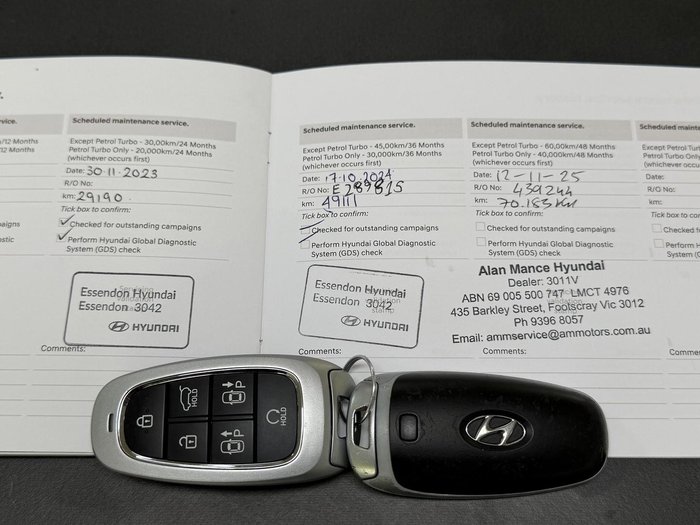 vice.
/12 Months
/12 Months
paigns
stic
Scheduled maintenance service.
Except Petrol Turbo - 30,000km/24 Months
Petrol Turbo Only - 20,000km/24 Months
(whichever occurs first)
Date: 30.11.2023
R/O No:
km: 29190
Tick box to confirm:
Checked for outstanding campaigns
Perform Hyundai Global Diagnostic
System (GDS) check
Essendon Hyundai
Essendon 3042
HYUNDAI
Comments:
Scheduled maintenance service.
Except Petrol Turbo - 45,000km/36 Months
Petrol Turbo Only - 30,000km/36 Months
(whichever occurs first)
Date: 17.10.2024
R/O No: E289815
km: 49111
Tick box to confirm:
Checked for outstanding campaigns
Perform Hyundai Global Diagnostic
System (GDS) check
Essendon Hyundai
Essendon 3042
stamp
HYUNDAI
Comments:
Scheduled maintenance service.
Except Petrol Turbo - 60,000km/48 Months
Petrol Turbo Only - 40,000km/48 Months
(whichever occurs first)
Date: 12-11-25
R/O No: 439244
km: 70.183 KM
Tick box to confirm:
Checked for outstanding campaigns
Perform Hyundai Global Diagnostic
System (GDS) check
Alan Mance Hyundai
Dealer: 3011V
ABN 69 005 500 747 LMCT 4976
435 Barkley Street, Footscray Vic 3012
Ph 9396 8057
Email: ammservice@ammotors.com.au
Comments:
Scheduled mainten
Except Petrol Turbo
Petrol Turbo Only -
(whichever occurs f
Date:
R/O No:
km:
Tick box to confirm:
Checked for outs
Perform Hyundai
System (GDS) ch
Comments:
HOLD
P
P
HOLD